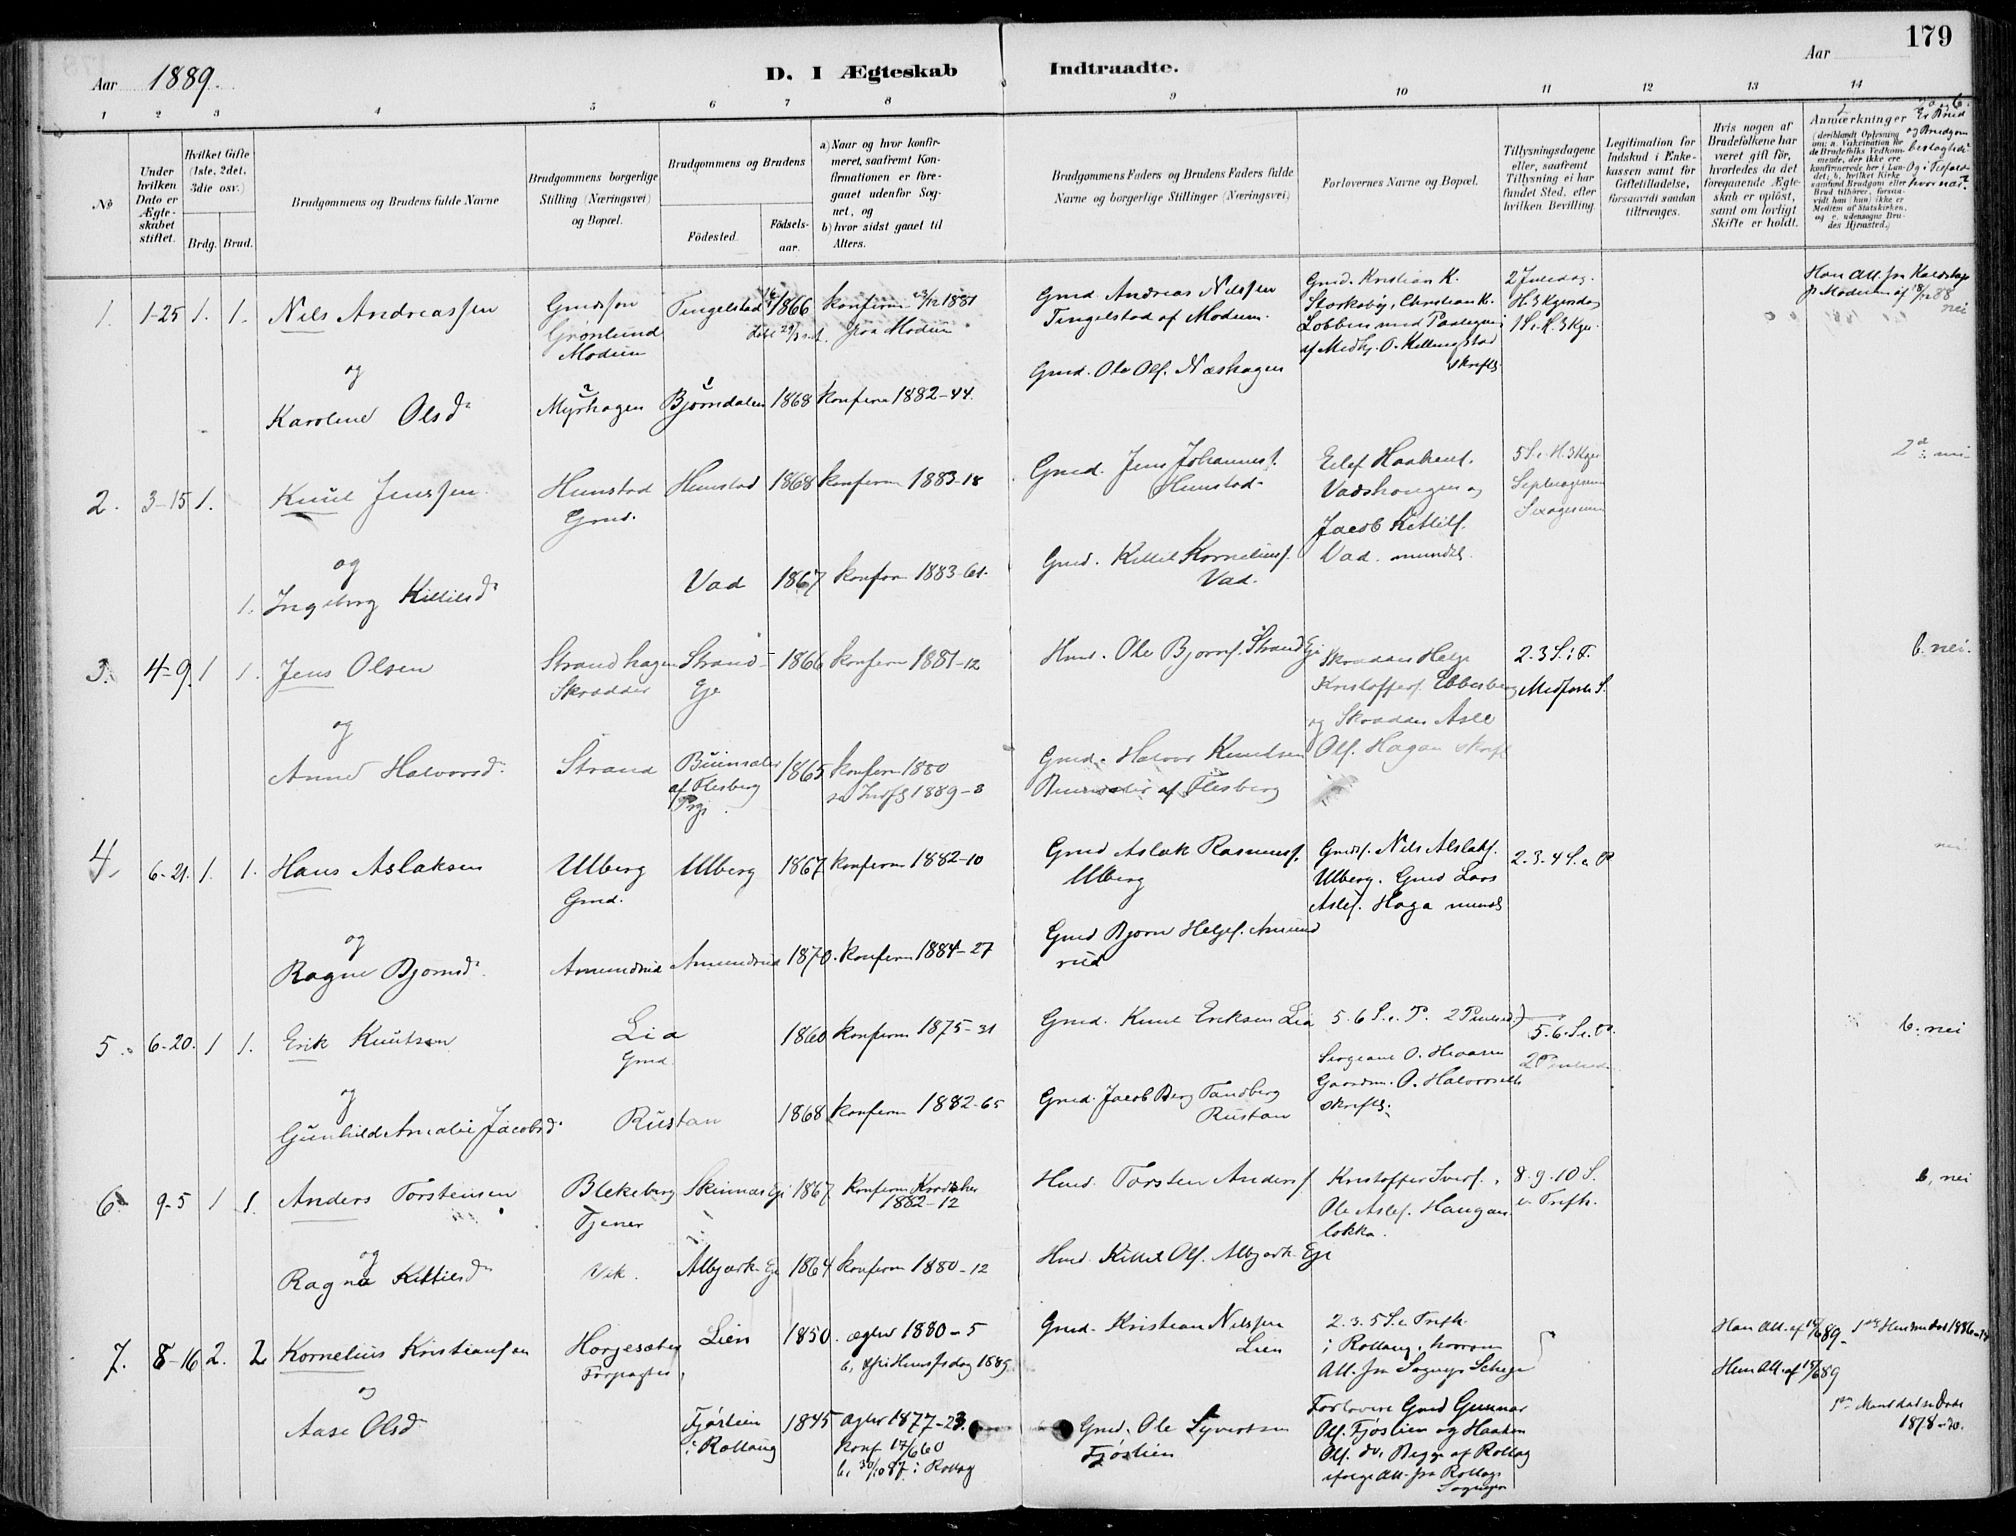 179
Aar 1889.
D. I Ægteskab Indtraadte.
Aar
1 2 3 4 5 6 7 8 9 10 11 12 13 14
No
Under hvilken Dato er Ægteskabet stiftet.
Hvilket Gifte (1ste, 2det, 3die osv.)
Brdg. Brud.
Brudgommens og Brudens fulde Navne
Brudgommens borgerlige Stilling (Næringsvei) og Bopæl.
Brudgommens og Brudens
Fødested. Fødselsaar.
a) Naar og hvor konfirmeret, saafremt Konfirmationen er foregaaet udenfor Sognet, og
b) hvor sidst gaaet til Alters.
Brudgommens Faders og Brudens Faders fulde Navne og borgerlige Stillinger (Næringsvei)
Forlovernes Navne og Bopæl.
Tillysningsdagene eller, saafremt Tillysning ei har fundet Sted, efter hvilken Bevilling.
Legitimation for Indskud i Enkekassen samt for Giftetilladelse, forsaavidt saadan tiltrænges.
Hvis nogen af Brudefolkene har været gift før, hvorledes da det foregaaende Ægteskab er opløst, samt om lovligt Skifte er holdt.
Anmærkninger (deriblandt Oplysning om: a. Vakcination for de Brudefolks Vedkommende, der ikke ere konfirmerede her i Landet, b. hvilket Kirkesamfund Brudgom eller Brud tilhører, forsaavidt han (hun) ikke er Medlem af Statskirken, og c. udensogns Brudes Hjemsted.)
Er Brud og Brudgom beslægtede
1. 1-25 1. 1. Nils Andreassen
Gmdssøn Grønlund Modum
Tingelstad 1866
konfirm 1881 fra Modum
Gmd. Andreas Nilssen
Tingelstad af Modum.
Gmd. Kristian K. Storkaby, Christian K. Lobben
skriftl
2 Juledag.
1 S. H. 3 Kgr.
Han Att. fra
nei
og
Karoline Olsd.
Myrhagen Bjørndalen 1868 konfirm 1882-44.
Gmd. Ole Ols. Næshagen
2. 3-15 1. Knut Jenssen
Humstad Gmd.
Humstad 1868 konfirm 1883-18
Gmd. Jens Johanness. Humstad
Eilef Haakens. Vadshaugen og
Jacob Kittils. Vad. mundtl.
5 S. H. 3 Kgr
Septuagesima
Sexagesima
nei
og
1. Ingeborg Kittilsd.
Vad 1867 konfirm 1883-61.
Gmd. Kittel Kornelius. Vad.
3. 4-9. 1 1. Jens Olsen
Strandhagen Skrædder
Strand Eje 1866 konfirm 1881-12
Hmd. Ole Bjørns. Strand Eje
Skrædder Helge Kristoffers. Ebbesberg
og Skrædder Asle Ols. Hagan skriftl
2. 3 S. i F.
Midfaste S.
b. nei.
og
Anne Halvorsd.
Strand
af Flesberg Prgj. 1865
konfirm 1880
1889-3
Gmd. Halvor Knutsen
af Flesberg
4. 6-21. 1. 1. Hans Aslaksen
Ulberg Gmd.
Ulberg 1867 konfirm 1882-10
Gmd Aslak Rasmuss. Ulberg
Gmds. Nils Aslaks. Ulberg. Gmd Lars
Asles. Haga mundtl
2. 3. 4 S. e. P.
nei
og
Ragne Bjørnsd.
Amundrud Amundrud 1870. konfirm 1884-27
Gmd Bjørn Helges. Amundrud
5. 6-20. 1 1. Erik Knutsen
Lia Gmd 1860 konfirm 1875-31
Gmd. Knut Eriksen Lia
5 6 S. e. P. 2 Pintsed.)
Sergeant O. Hraasen
Gaardm. O. Halvorseth
skriftl.
5. 6. S. e. P.
2 Pintsed.
b. nei
og
Gunhild Amalie Jacobsd.
Rustan 1868 konfirm 1882-65
Gmd. Jacob Berg Tandberg Rustan
6. 9-5 1 1. Anders Torstensen
Blekeberg Tjener
Skinnæs Eje 1867 konfirm Krødsher 1882-12
Hmd. Torsten Anders.
Kristoffer Svers.
Ole Asles. Haugan
løkka.
8. 9. 10 S. e. Trefh.
b, nei
og
Ragne Kittilsd.
Vik. Albjørk Eje 1864 konfirm 1880-12
Hmd. Kittel Ols. Albjørk Eje
7. 8-16 2. 2 Kornelius Kristiansen
Horgesæter Forpagter
Lien 1850. ægtev 1880-5
1889
Gmd. Kristian Nilssen Lien
2. 3. 5 S. e. Trefh.
i Rollaug, hvorom
Att. fra Sogneprs
Han Att. af 14/6 89.
Hun Att. af 15/6 89
1ste Hustru død 1886
og
Aase Olsd.
Fjøslien i Rollaug 1845
Ægtev 1877-23.
konf 17/6 60
b. 30/10 87. i Rollag
Gmd. Ole Syvertsen Fjøslien
Forlovere Gmd Gunnar
Ols. Fjøslien og Haaken
Ols. do, Begge af Rollag
ifølge Att. fra Rollags Sognepr
1ste Mand
1878-20.